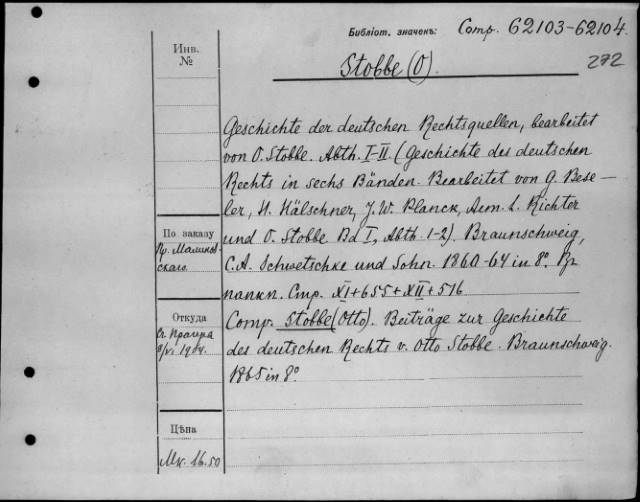 Библiот. значекъ: Comp. 62103-62104.
Инв.
№
Stobbe (O).
272
Geschichte der deutschen Rechtsquellen, bearbeitet
von O. Stobbe. Abth. I-II. (Geschichte des deutschen
Rechts in sechs Bänden. Bearbeitet von G. Bese-
ler, H. Hälschner, J. W. Planck, Aem. L. Richter
und O. Stobbe. Bd I, Abth. 1-2). Braunschweig,
C. A. Schwetschke und Sohn 1860-64 in 8°.
папкп. Стр. XI + 655 + XII + 516
Comp. Stobbe (Otto). Beiträge zur Geschichte
des deutschen Rechts v. Otto Stobbe. Braunschweig.
1865 in 8°.
По заказу
Пр. Малинов-
скаго.
Откуда
1904.
Цѣна
Мк. 16.50